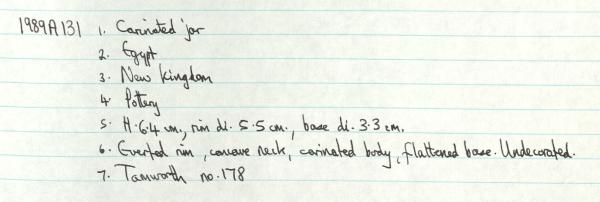 1989A131 1. Carinated jar
2. Egypt
3. New Kingdom
4. Pottery
5. H. 6.4 cm., rim di. 5.5 cm., base di. 3.3 cm.
6. Everted rim, concave neck, carinated body, flattened base. Undecorated.
7. Tamworth no. 178